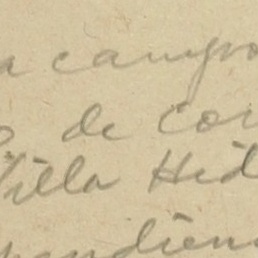 a campo
de cor
Villa Hid
pondien